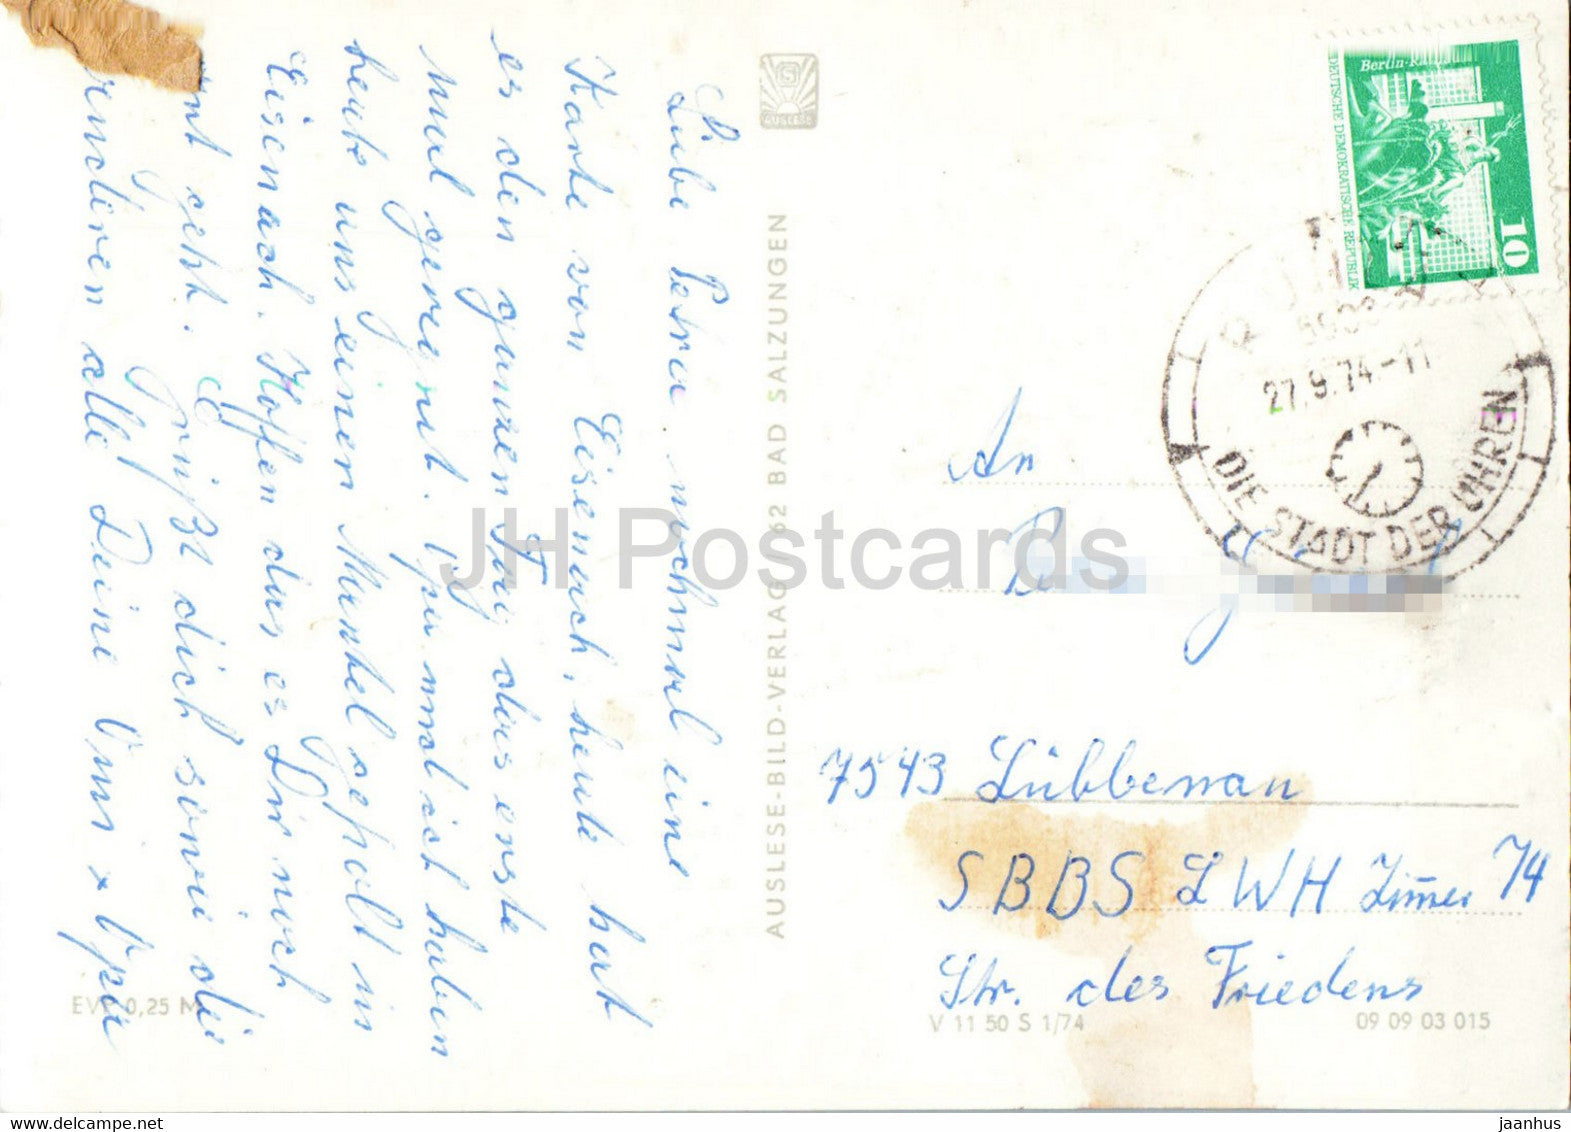 Liebe Petra nochmal eine
Karte von Eisenach, heute hat
es den ganzen Tag das erste
mal geregnet. Opa und ich haben
heute uns einen Mantel geholt in
Eisenach. Hoffen das es Dir noch
geht. Es Grüßt dich sowie die
anderen alle Deine Oma + Opa
EVP 0,25 M
AUSLESE-BILD-VERLAG 62 BAD SALZUNGEN
AUSLESE
Berlin
DEUTSCHE DEMOKRATISCHE REPUBLIK
10
27.9.74.-11
DIE STADT DER UHREN
An
7543 Lübbenau
SBBS LWH Zimmer 74
Str. des Friedens
V 11 50 S 1/74
09 09 03 015
JH Postcards
jaanhus